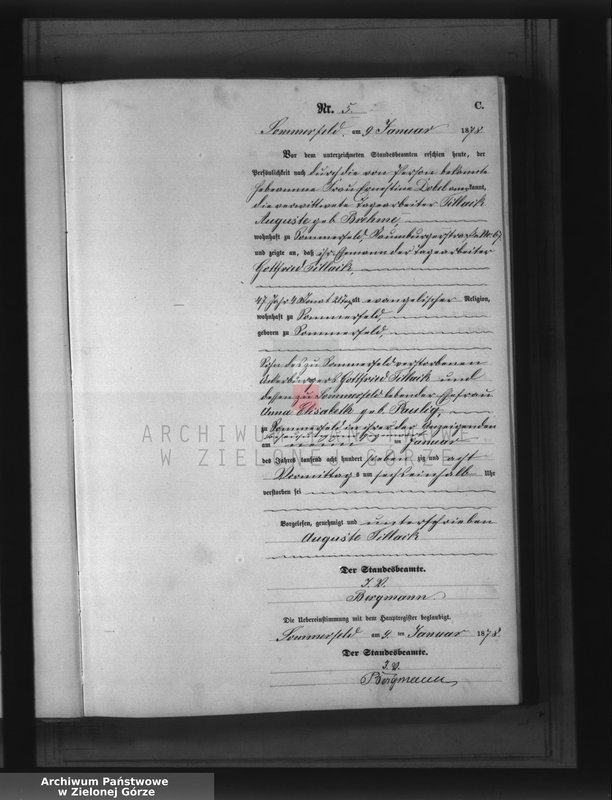 Nr. 5.
C.
Sommerfeld, am 9 Januar 1878.
Vor dem unterzeichneten Standesbeamten erschien heute, der
Persönlichkeit nach durch die von Person bekannte
Hebeamme Frau Ernestine anerkannt,
die verwittwete Tagearbeiter Tillack
Auguste geb. Böhme,
wohnhaft zu Sommerfeld, Naumburgerstraße No 67
und zeigte an, daß ihr Ehemann der Tagearbeiter
Gottfried Tillack,
47 Jahr 4 Monat alt evangelischer Religion,
wohnhaft zu Sommerfeld,
geboren zu Sommerfeld,
Sohn des zu Sommerfeld verstorbenen
Ackerbürgers Gottfried Tillack und
dessen zu Sommerfeld lebender Ehefrau
Anna Elisabeth geb.
zu Sommerfeld in ihrer der Anzeigenden
am neun ten Januar
des Jahres tausend acht hundert sieben zig und acht
Vormittags um sechseinhalb Uhr
verstorben sei
Vorgelesen, genehmigt und unterschrieben
Auguste Tillack
Der Standesbeamte.
I. V.
Bergmann.
Die Uebereinstimmung mit dem Hauptregister beglaubigt.
Sommerfeld am 9 ten Januar 1878.
Der Standesbeamte.
I. V.
Bergmann
ARCHIWUM PAŃSTWOWE
W ZIELONEJ GÓRZE
Archiwum Państwowe
w Zielonej Górze